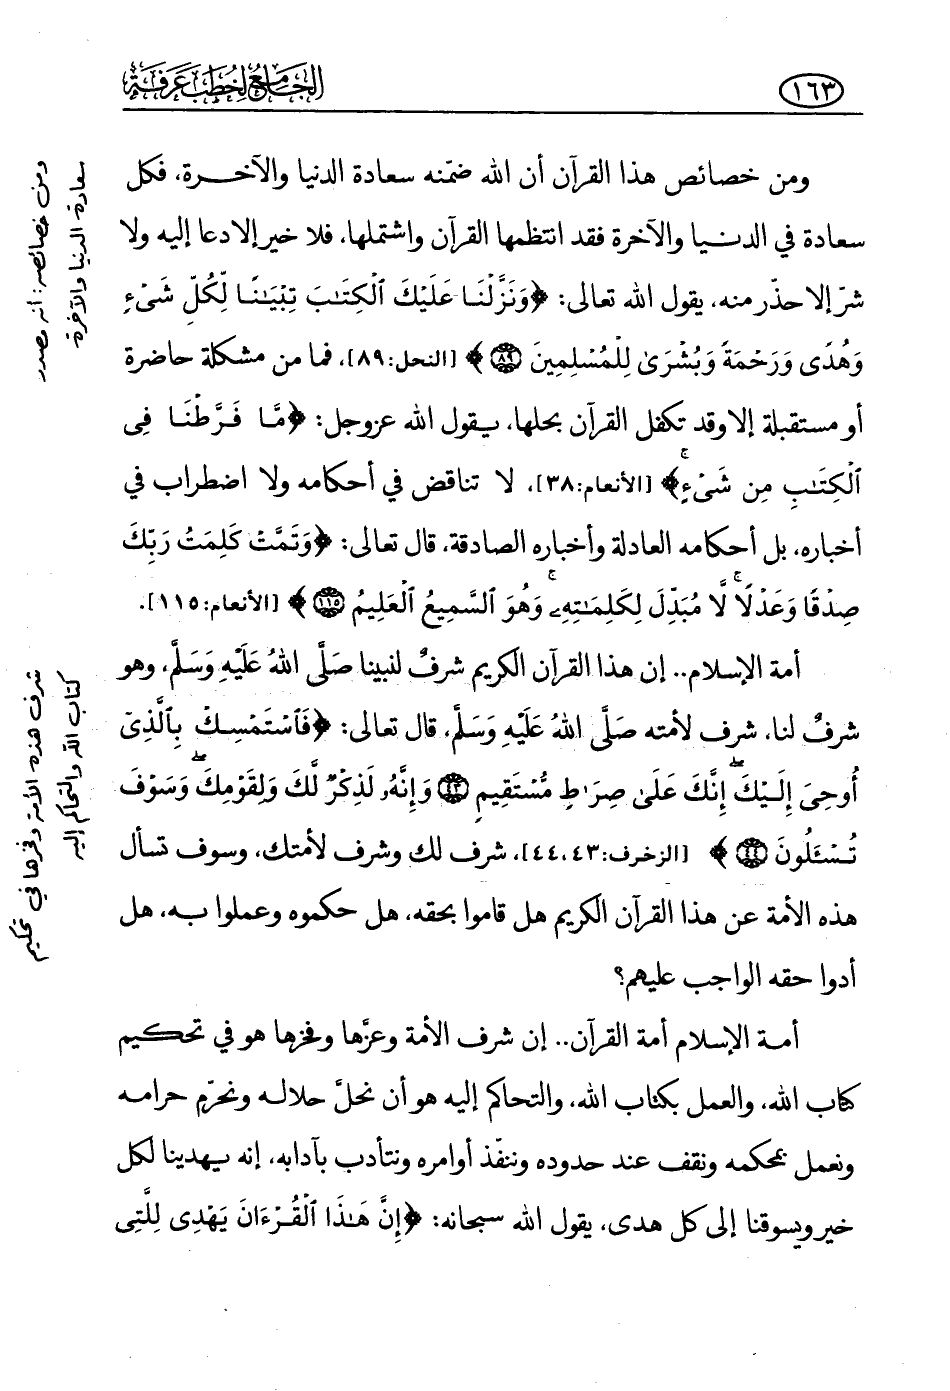 ١٦٣
الجامع لخطب عرفة
ومن خصائص هذا القرآن أن الله ضمّنه سعادة الدنيا والآخرة، فكل
سعادة في الدنيا والآخرة فقد انتظمها القرآن واشتملها، فلا خير إلا دعا إليه ولا
شرّ إلا حذّر منه، يقول الله تعالى: ﴿وَنَزَّلْنَا عَلَيْكَ ٱلْكِتَٰبَ تِبْيَٰنًا لِّكُلِّ شَىْءٍ
وَهُدًى وَرَحْمَةً وَبُشْرَىٰ لِلْمُسْلِمِينَ ۝٨٩﴾ [النحل:٨٩]، فما من مشكلة حاضرة
أو مستقبلة إلا وقد تكفل القرآن بحلها، يقول الله عزوجل: ﴿مَّا فَرَّطْنَا فِى
ٱلْكِتَٰبِ مِن شَىْءٍۚ﴾ [الأنعام:٣٨]، لا تناقض في أحكامه ولا اضطراب في
أخباره، بل أحكامه العادلة وأخباره الصادقة، قال تعالى: ﴿وَتَمَّتْ كَلِمَتُ رَبِّكَ
صِدْقًا وَعَدْلًاۚ لَّا مُبَدِّلَ لِكَلِمَٰتِهِۦۚ وَهُوَ ٱلسَّمِيعُ ٱلْعَلِيمُ ۝١١٥﴾ [الأنعام:١١٥].
أمة الإسلام.. إن هذا القرآن الكريم شرفٌ لنبينا صَلَّى اللهُ عَلَيْهِ وَسَلَّم، وهو
شرفٌ لنا، شرف لأمته صَلَّى اللهُ عَلَيْهِ وَسَلَّم، قال تعالى: ﴿فَٱسْتَمْسِكْ بِٱلَّذِىٓ
أُوحِىَ إِلَيْكَۖ إِنَّكَ عَلَىٰ صِرَٰطٍ مُّسْتَقِيمٍ ۝٤٣ وَإِنَّهُۥ لَذِكْرٌ لَّكَ وَلِقَوْمِكَۖ وَسَوْفَ
تُسْـَٔلُونَ ۝٤٤﴾ [الزخرف:٤٣، ٤٤]، شرف لك وشرف لأمتك، وسوف تسأل
هذه الأمة عن هذا القرآن الكريم هل قاموا بحقه، هل حكموه وعملوا به، هل
أدوا حقه الواجب عليهم؟
أمة الإسلام أمة القرآن.. إن شرف الأمة وعزَّها وفخرها هو في تحكيم
كتاب الله، والعمل بكتاب الله، والتحاكم إليه هو أن نحلَّ حلاله ونحرّم حرامه
ونعمل بمحكمه ونقف عند حدوده وننفّذ أوامره ونتأدب بآدابه، إنه يهدينا لكل
خير ويسوقنا إلى كل هدى، يقول الله سبحانه: ﴿إِنَّ هَٰذَا ٱلْقُرْءَانَ يَهْدِى لِلَّتِى
ومن خصائصه: أنه مصدر
سعادة الدنيا والآخرة
شرف هذه الأمة وفخرها في تحكيم
كتاب الله والتحاكم إليه